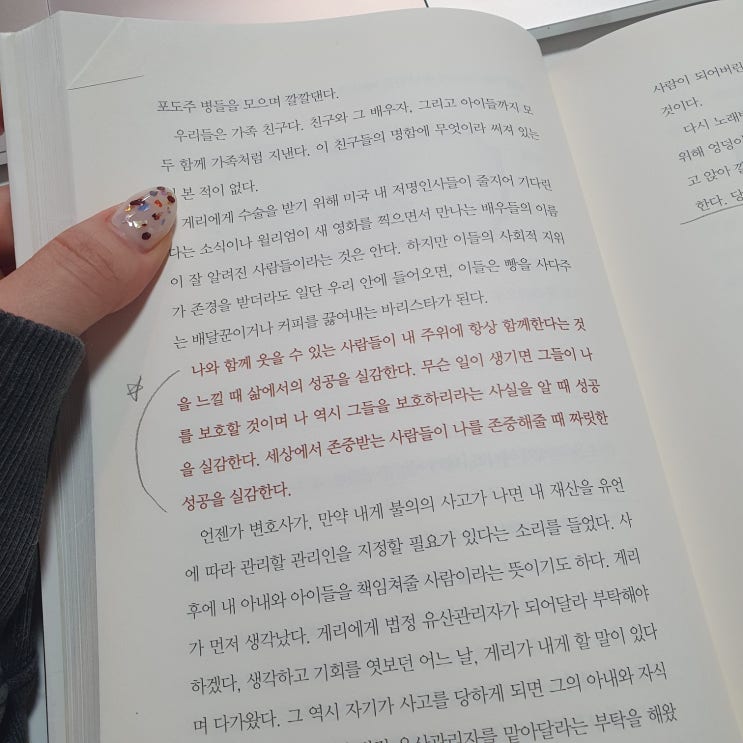 포도주 병들을 모으며 깔깔댄다.
우리들은 가족 친구다. 친구와 그 배우자, 그리고 아이들까지 모
두 함께 가족처럼 지낸다. 이 친구들의 명함에 무엇이라 써져 있는
본 적이 없다.
게리에게 수술을 받기 위해 미국 내 저명인사들이 줄지어 기다린
다는 소식이나 윌리엄이 새 영화를 찍으면서 만나는 배우들의 이름
이 잘 알려진 사람들이라는 것은 안다. 하지만 이들의 사회적 지위
가 존경을 받더라도 일단 우리 안에 들어오면, 이들은 빵을 사다주
는 배달꾼이거나 커피를 끓여내는 바리스타가 된다.
나와 함께 웃을 수 있는 사람들이 내 주위에 항상 함께한다는 것
을 느낄 때 삶에서의 성공을 실감한다. 무슨 일이 생기면 그들이 나
를 보호할 것이며 나 역시 그들을 보호하리라는 사실을 알 때 성공
을 실감한다. 세상에서 존중받는 사람들이 나를 존중해줄 때 짜릿한
성공을 실감한다.
언젠가 변호사가, 만약 내게 불의의 사고가 나면 내 재산을 유언
에 따라 관리할 관리인을 지정할 필요가 있다는 소리를 들었다. 사
후에 내 아내와 아이들을 책임져줄 사람이라는 뜻이기도 하다. 게리
가 먼저 생각났다. 게리에게 법정 유산관리자가 되어달라 부탁해야
하겠다, 생각하고 기회를 엿보던 어느 날, 게리가 내게 할 말이 있다
며 다가왔다. 그 역시 자기가 사고를 당하게 되면 그의 아내와 자식
유산관리자를 맡아달라는 부탁을 해왔
사람이 되어버린
것이다.
다시 노래
위해 엉덩이
고 앉아
한다. 당